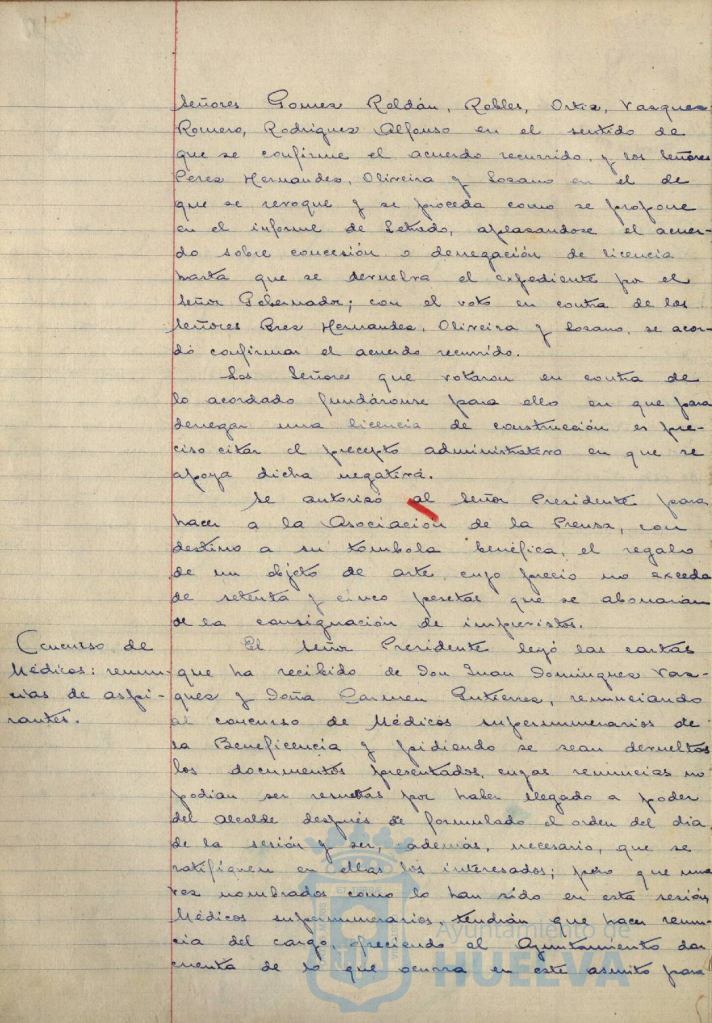 Señores Gomez Roldán, Robles, Ortiz, Vazquez
Romero, Rodriguez Alfonso en el sentido de
que se confirme el acuerdo recurrido, y los Señores
Pérez Hernandez, Oliveira y Lozano en el de
que se revoque y se proceda como se propone
en el informe de Letrado, aplazandose el acuer-
do sobre concesión o denegación de licencia
hasta que se devuelva el expediente por el
Señor Gobernador; con el voto en contra de los
Señores Prez Hernandez, Oliveira y Lozano, se acor-
dó confirmar el acuerdo recurrido.
Los Señores que votaron en contra de
lo acordado fundáronse para ello en que para
denegar una licencia de construcción es pre-
ciso citar el precepto administrativo en que se
apoya dicha negativa.
Se autorizó al Señor Presidente para
hacer a la Asociación de la Prensa, con
destino a su tombola benéfica, el regalo
de un objeto de arte, cuyo precio no exceda
de setenta y cinco pesetas que se abonarán
de la consignación de imprevistos.
Concurso de
Médicos: renun-
cias de aspi-
rantes.
El Señor Presidente leyó las cartas
que ha recibido de Don Juan Dominguez Vaz-
quez y Doña Carmen Gutierrez, renunciando
al concurso de Médicos supernumerarios de
la Beneficencia y pidiendo se sean devueltos
los documentos presentados, cuyas renuncias no
podian ser resueltas por haber llegado a poder
del Alcalde después de formulado el orden del dia
de la sesión y ser, además, necesario, que se
ratifiquen en ellas los interesados; pero que una
vez nombrados como lo han sido en esta sesión
Médicos supernumerarios, tendrán que hacer renun-
cia del cargo, ofreciendo al Ayuntamiento dar
cuenta de lo que ocurra en este asunto para
Ayuntamiento de
HUELVA